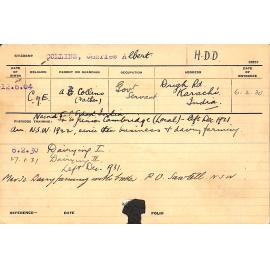 STUDENT COLLINS, Charles Albert H.D.D.
DATE OF BIRTH RELIGION PARENT OR GUARDIAN OCCUPATION ADDRESS DATE OF ENTRY
12.6.04 C of E. A E Collins (Father) Govt Servant Drigh Rd. Karachi, India. 6.2.30
to Senior Cambridge (Local) - left Dec 1921
Arr. N.S.W 1922 since then business & dairy farming
6.2.30 Dairying I.
27.1.31 Dairying II.
Left Dec. 1931.
Dairy farming with P.O. Sawtell N.S.W
REFERENCE— DATE FOLIO